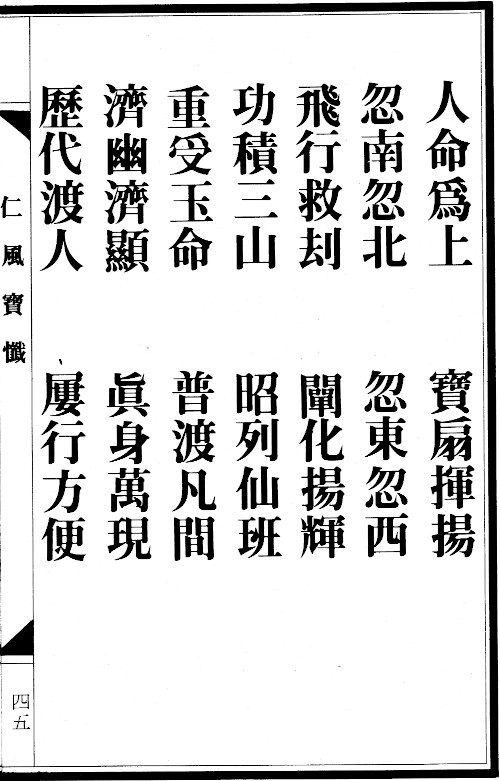 人命爲上　寶扇揮揚
忽南忽北　忽東忽西
飛行救刦　闡化揚輝
功積三山　昭列仙班
重受玉命　普渡凡間
濟幽濟顯　眞身萬現
歷代渡人　屢行方便
仁風寶懺
四五